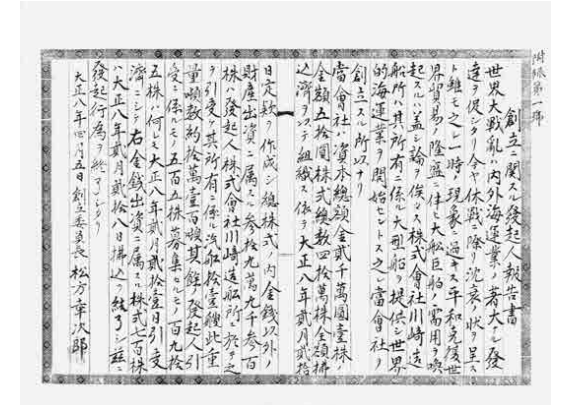 附紙第一号
創立ニ関スル発起人報告書
世界大戦乱ハ内外海運業ノ著大ナル発
達ヲ促シタリ今ヤ休戦ニ際リ沈衰ノ状ヲ呈ス
ト雖モ之レ一時ノ現象ニ過キス平和克復世
界貿易ノ隆盛ニ伴ヒ大船巨舶ノ需用ヲ喚
起スルハ蓋シ論ヲ俟タス株式會社川崎造
船所ハ其所有ニ係ル大型船ヲ提供シ世界
的海運業ヲ開始セントス之レ當會社ノ
創立スル所以ナリ
當會社ノ資本総額金貳千萬圓壹株ノ
金額五拾圓株式総数四拾萬株全額拂
込済ヲ以テ組織ス依テ大正八年貳月貳拾
日定款ヲ作成シ総株式ノ内金銭以外ノ
財産出資ニ属スル参拾九萬九千参百
株ハ発起人株式會社川崎造船所ニ於テ之
ヲ引受ケ其所有ニ係ル汽船拾壹艘此重
量噸数約拾萬壹百噸其餘ノ発起人引
受ニ係ルモノ五百五株募集セルモノ百九拾
五株ハ何レモ大正八年貳月貳拾壹日引受
済ニシテ右金銭出資ニ属スル株式七百株
ハ大正八年貳月貳拾八日拂込ヲ結了シ茲ニ
発起行為ヲ終了シタリ
大正八年四月五日創立委員長 松方幸次郎